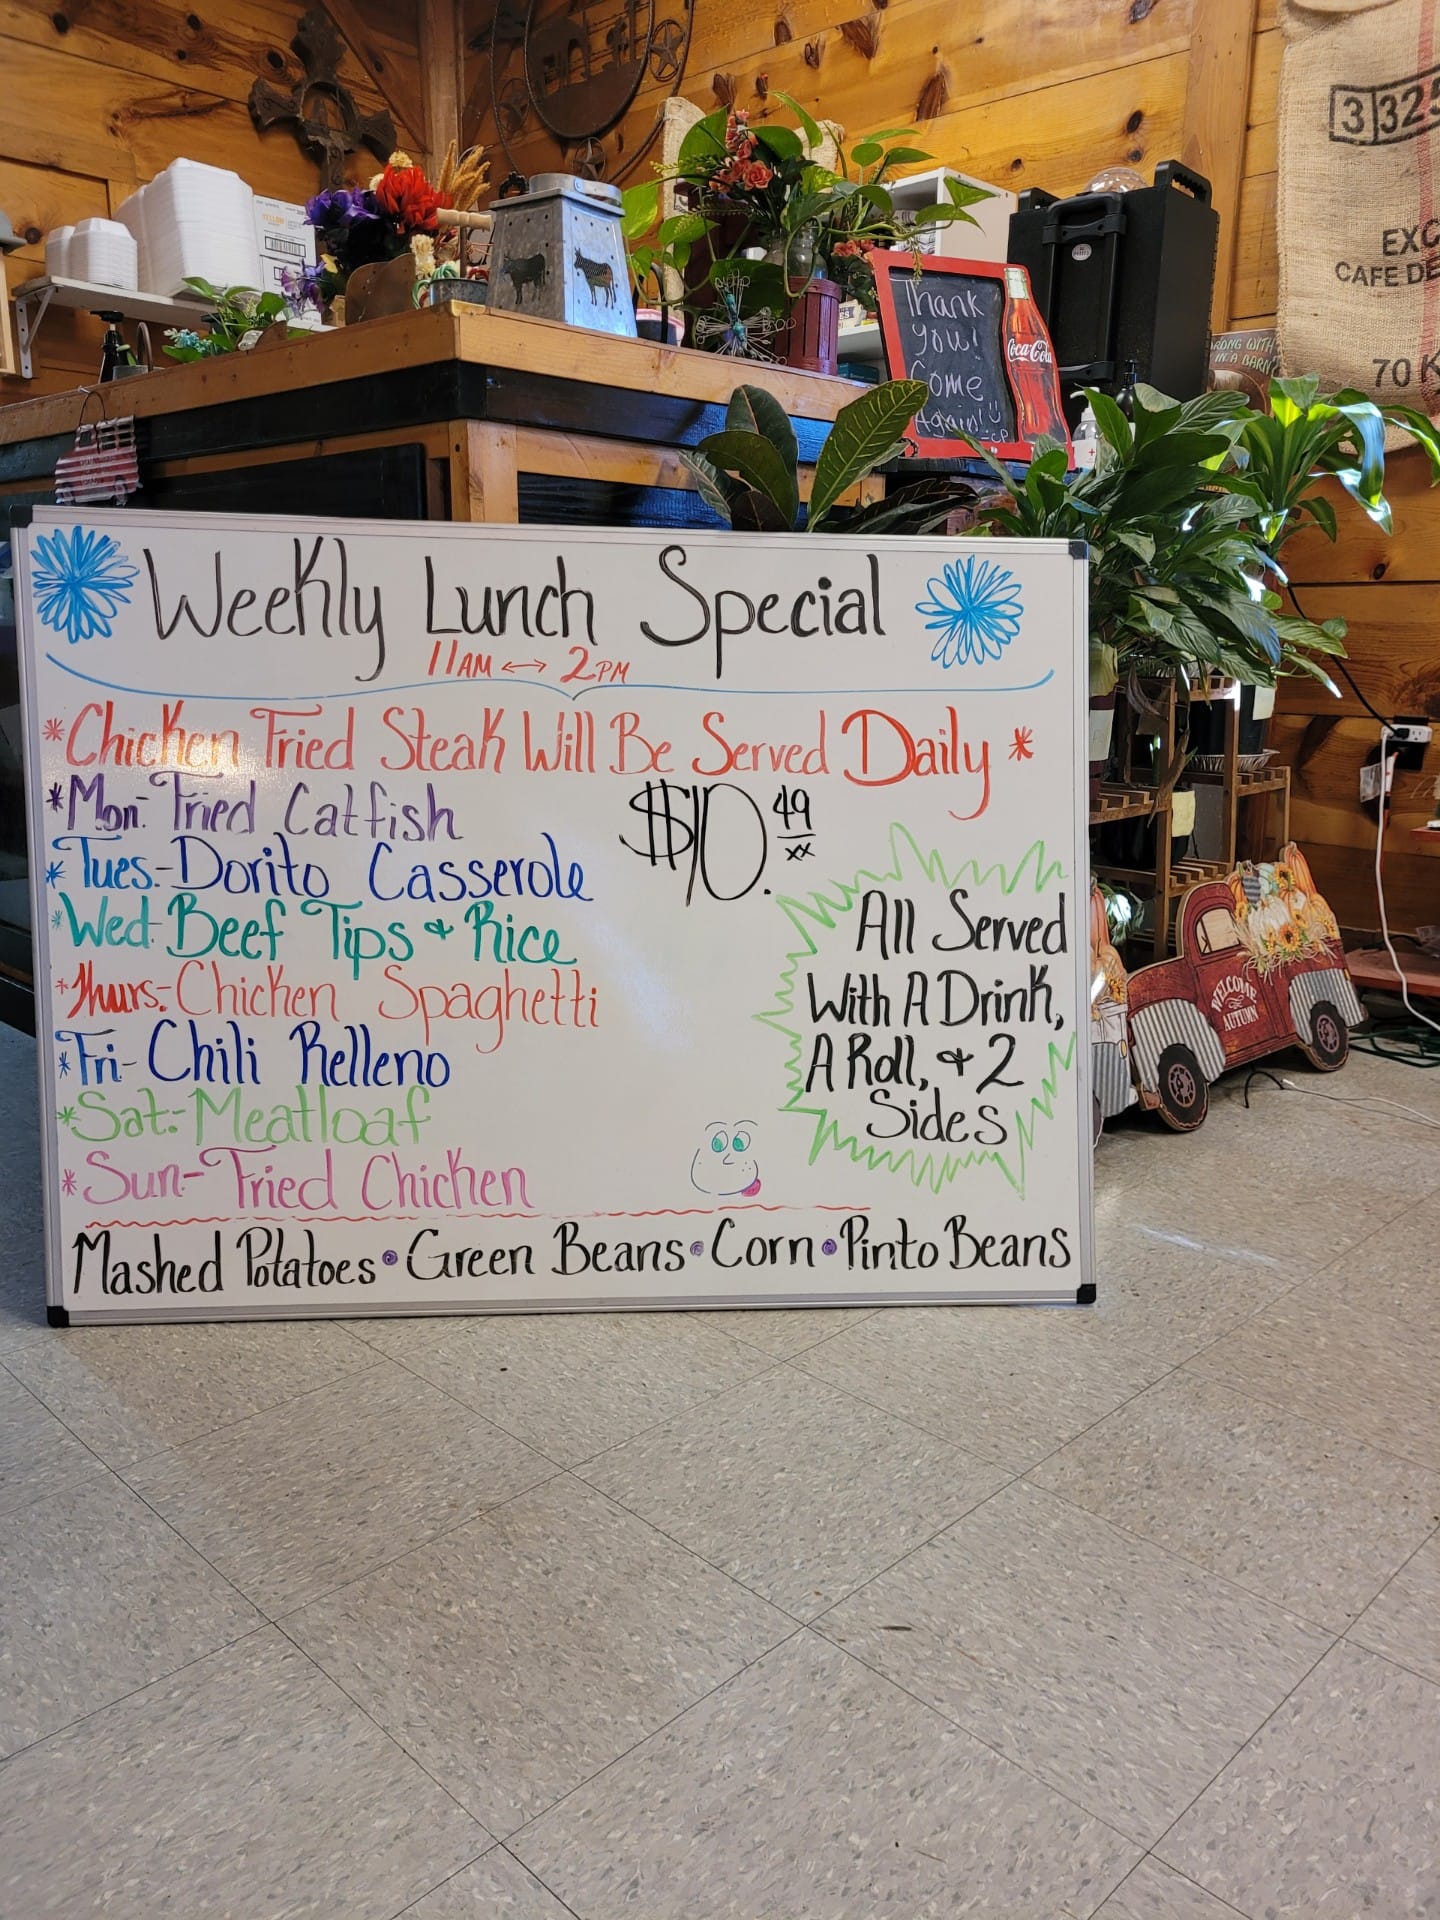 3 325
EXC
CAFE DE
70 K
Thank
you!
Come
Again!
-CP
Coca-Cola
IN A BARN
Weekly Lunch Special
11AM ↔ 2PM
*Chicken Fried Steak Will Be Served Daily *
*Mon: Fried Catfish
$10.49
xx
*Tues.-Dorito Casserole
*Wed-Beef Tips & Rice
*Thurs:-Chicken Spaghetti
*Fri-Chili Relleno
*Sat:-Meatloaf
*Sun-Fried Chicken
All Served
With A Drink,
A Roll, & 2
Sides
Mashed Potatoes•Green Beans•Corn•Pinto Beans
WELCOME
AUTUMN